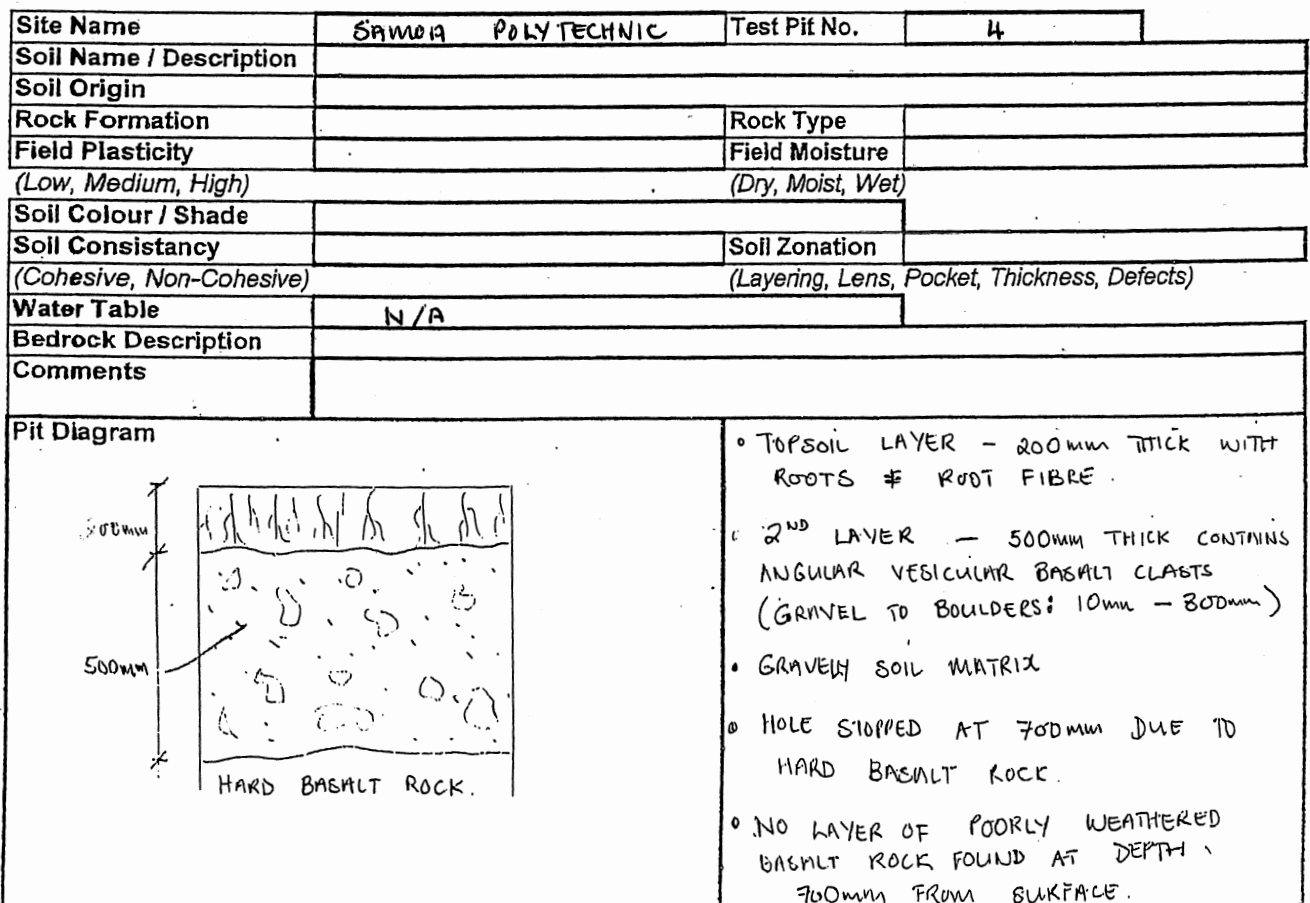 Site Name SAMOA POLYTECHNIC Test Pit No. 4
Soil Name / Description
Soil Origin
Rock Formation Rock Type
Field Plasticity Field Moisture
(Low, Medium, High) (Dry, Moist, Wet)
Soil Colour / Shade
Soil Consistancy Soil Zonation
(Cohesive, Non-Cohesive) (Layering, Lens, Pocket, Thickness, Defects)
Water Table N/A
Bedrock Description
Comments
Pit Diagram
500mm
HARD BASALT ROCK.
• TOPSOIL LAYER - 200mm THICK WITH
ROOTS & ROOT FIBRE.
• 2ND LAYER - 500mm THICK CONTAINS
ANGULAR VESICULAR BASALT CLASTS
(GRAVEL TO BOULDERS: 10mm - 300mm)
• GRAVELY SOIL MATRIX
• HOLE STOPPED AT 700mm DUE TO
HARD BASALT ROCK.
• NO LAYER OF POORLY WEATHERED
BASALT ROCK FOUND AT DEPTH
700mm FROM SURFACE.